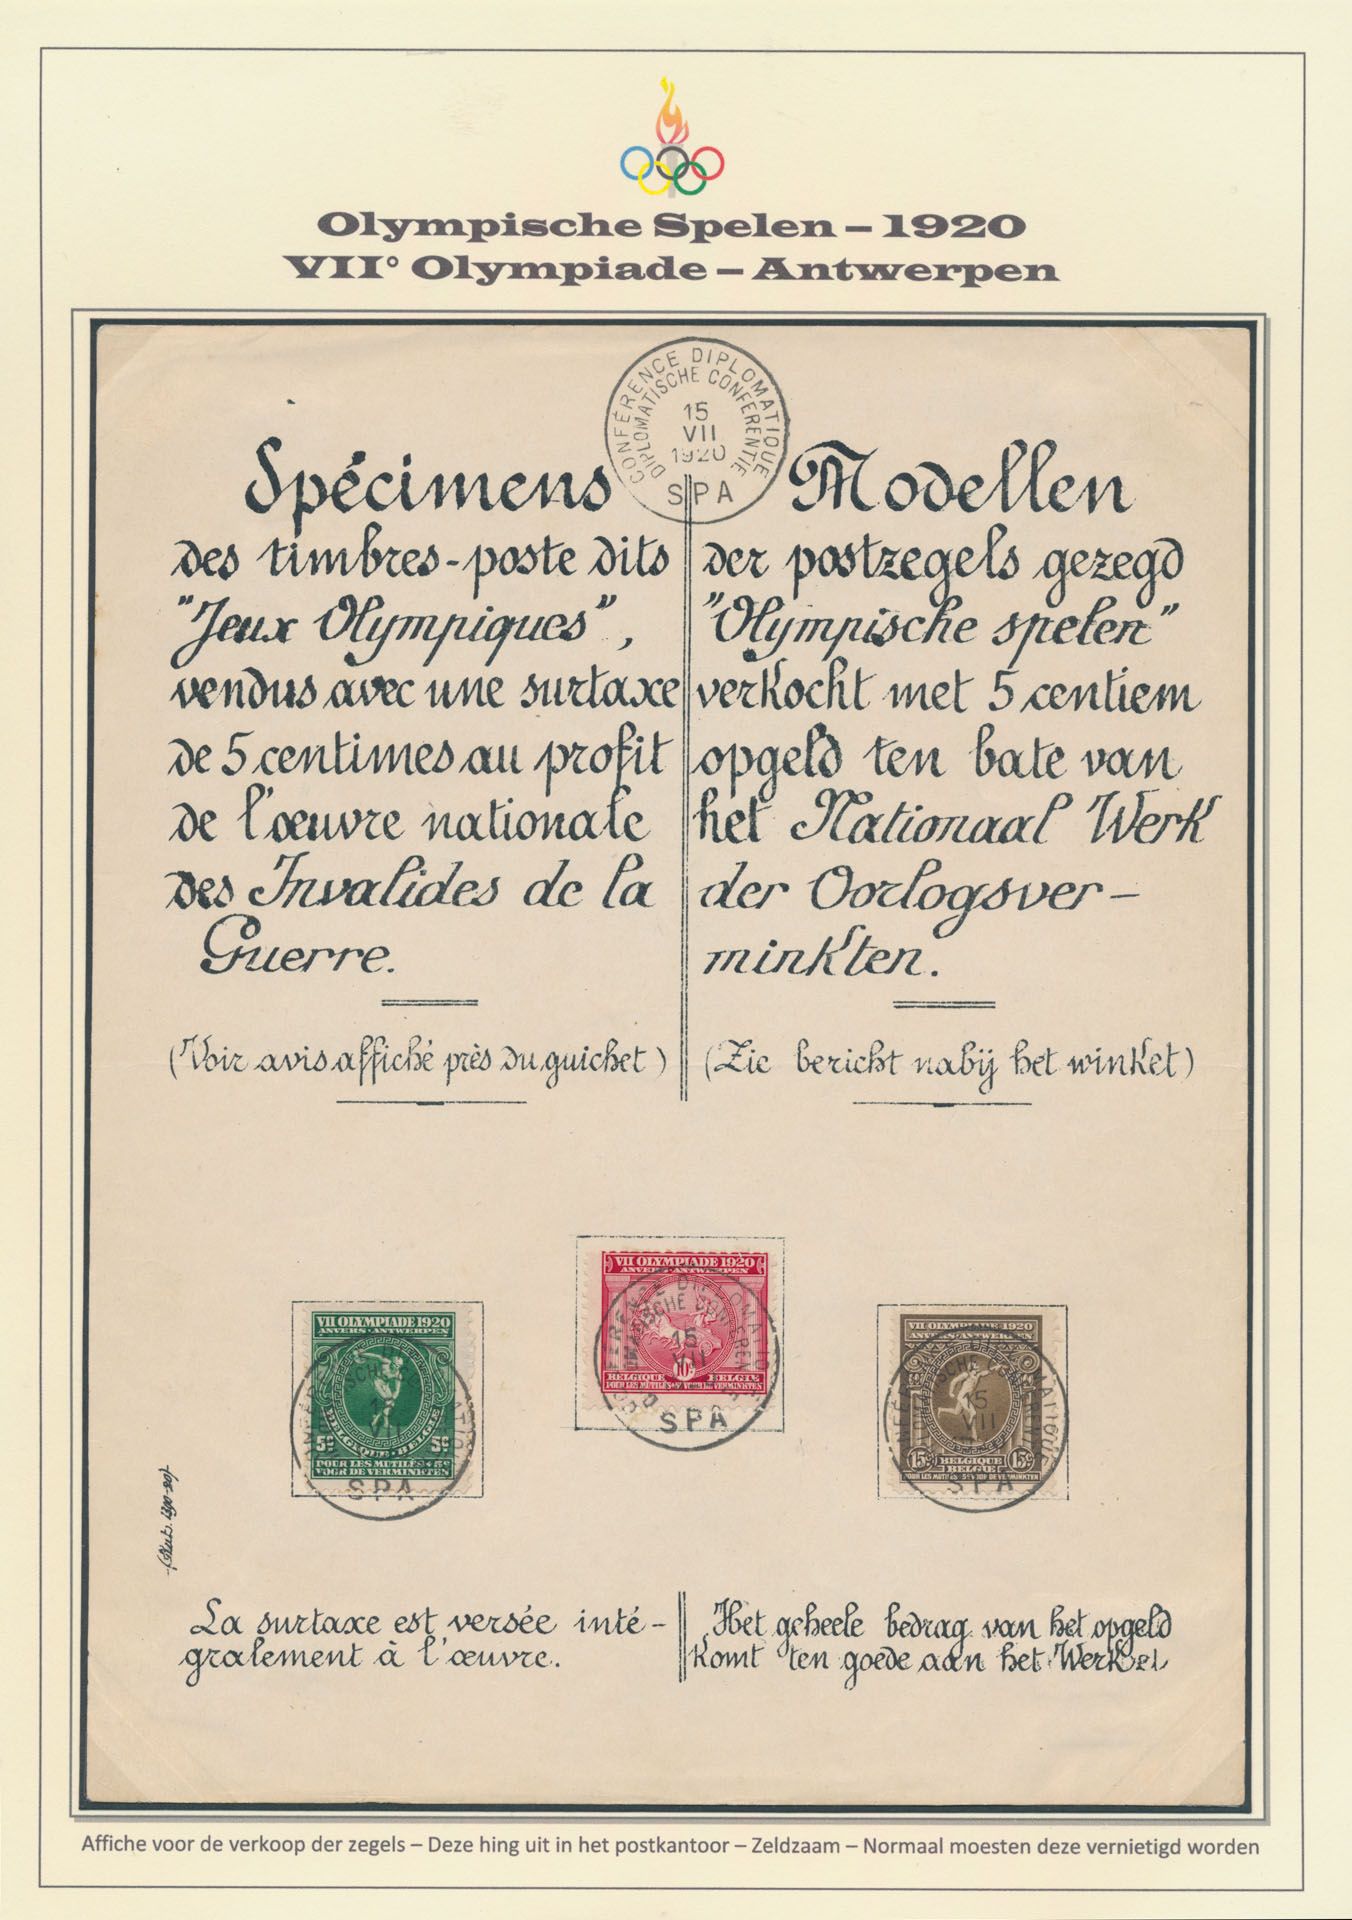 Olympische Spelen – 1920
VII° Olympiade – Antwerpen
CONFÉRENCE DIPLOMATIQUE
DIPLOMATISCHE CONFERENTIE
15
VII
1920
SPA
Spécimens
des timbres-poste dits
"Jeux Olympiques",
vendus avec une surtaxe
de 5 centimes au profit
de l'œuvre nationale
des Invalides de la
Guerre.
(Voir avis affiché près du guichet)
Modellen
der postzegels gezegd
"Olympische spelen"
verkocht met 5 centiem
opgeld ten bate van
het Nationaal Werk
der Oorlogsver-
minkten.
(Zie bericht nabij het winket)
VII OLYMPIADE 1920
ANVERS·ANTWERPEN
5c 5c
BELGIQUE·BELGIE
POUR LES MUTILÉS·5c
VOOR DE VERMINKTEN
SPA
VII OLYMPIADE 1920
ANVERS·ANTWERPEN
15
VII
10c
BELGIQUE BELGIE
POUR LES MUTILÉS·5c VOOR DE VERMINKTEN
SPA
VII OLYMPIADE 1920
ANVERS·ANTWERPEN
15
VII
15c BELGIQUE 15c
BELGIE
POUR LES MUTILÉS·5c VOOR DE VERMINKTEN
SPA
La surtaxe est versée inté-
gralement à l'œuvre.
Het geheele bedrag van het opgeld
komt ten goede aan het Werk
Affiche voor de verkoop der zegels – Deze hing uit in het postkantoor – Zeldzaam – Normaal moesten deze vernietigd worden